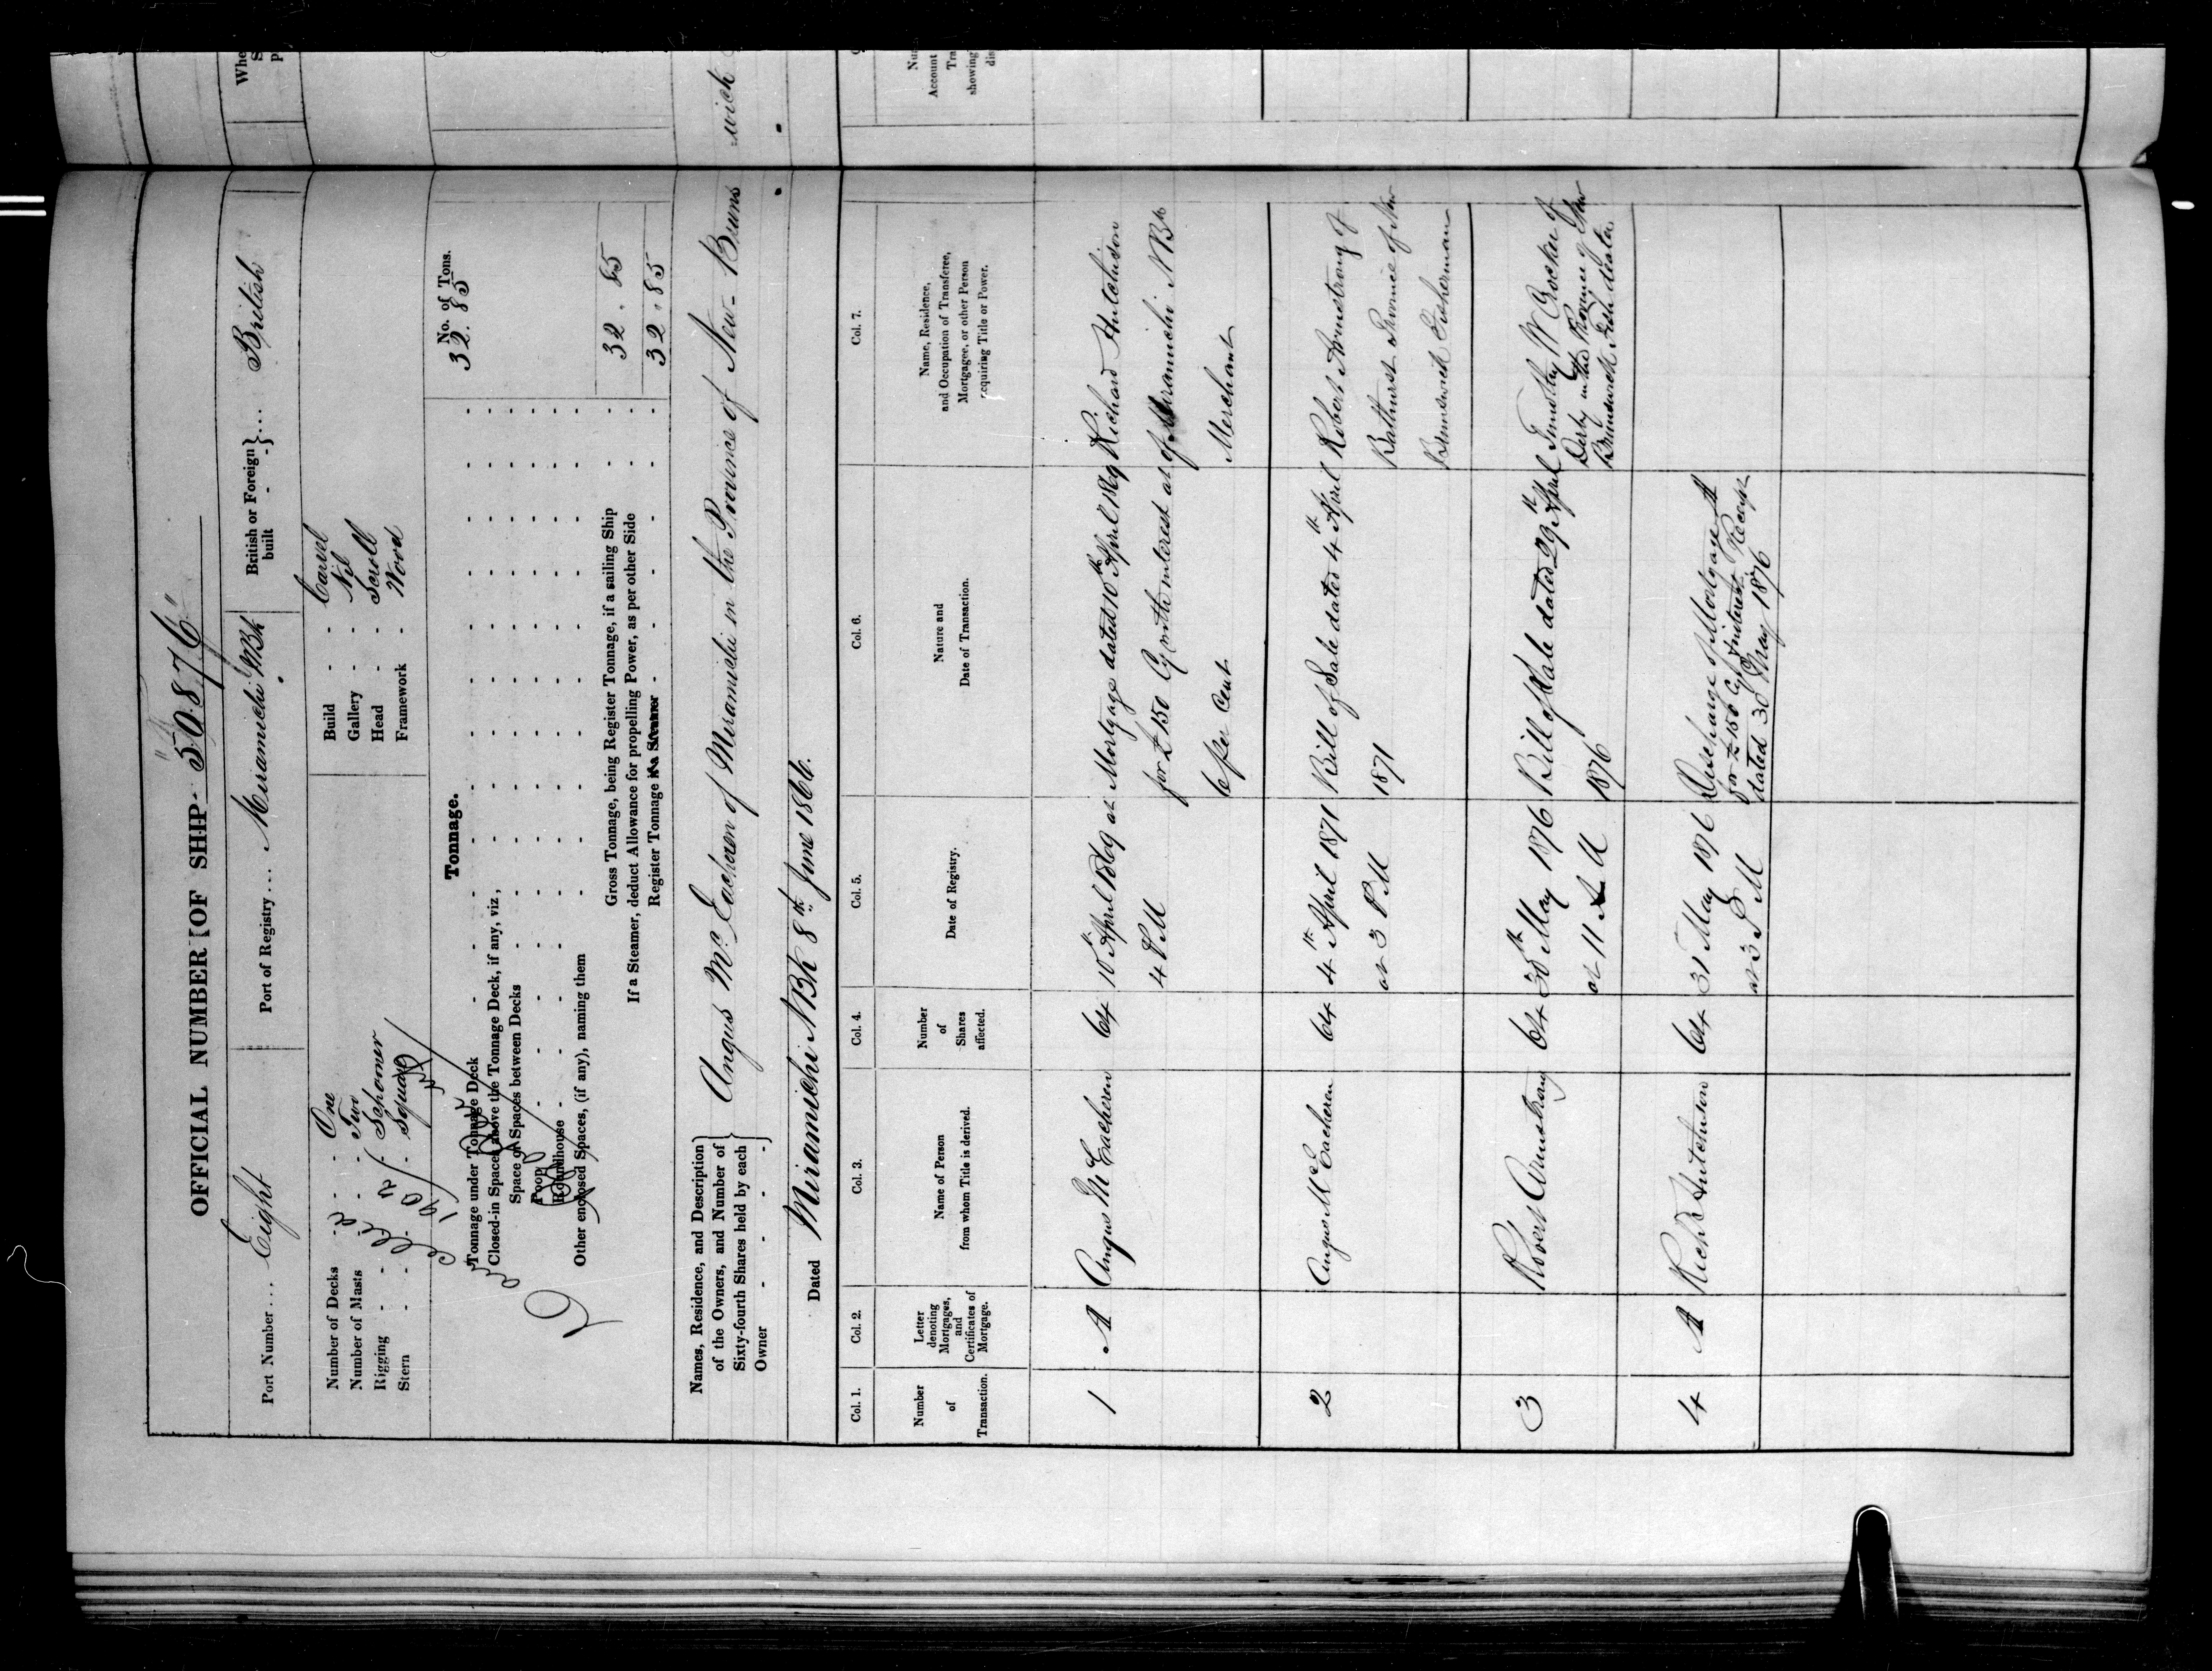 OFFICIAL NUMBER OF SHIP "50876"
Port Number... Eight Port of Registry... Miramichi NBk British or Foreign built - - }... British
Number of Decks - - One Build - - Carvel
Number of Masts - - Two Gallery - - Nil
Rigging - - - Schooner Head - - Scroll
Stern - - - Square Framework - Wood
Tonnage. No. of Tons.
Tonnage under Tonnage Deck 32.85
Closed-in Spaces above the Tonnage Deck, if any, viz,
Space or Spaces between Decks
Poop
Roundhouse
Other enclosed Spaces, (if any), naming them
Gross Tonnage, being Register Tonnage, if a sailing Ship 32.85
If a Steamer, deduct Allowance for propelling Power, as per other Side
Register Tonnage if a Steamer 32.85
Names, Residence, and Description
of the Owners, and Number of
Sixty-fourth Shares held by each
Owner
Angus McEacheren of Miramichi in the Province of New-Bruns
-wick
Dated Miramichi NBk 8th June 1866.
Col. 1. Col. 2. Col. 3. Col. 4. Col. 5. Col. 6. Col. 7.
Number of Transaction.
Letter denoting Mortgages, and Certificates of Mortgage.
Name of Person from whom Title is derived.
Number of Shares affected.
Date of Registry.
Nature and Date of Transaction.
Name, Residence, and Occupation of Transferee, Mortgagee, or other Person requiring Title or Power.
1 A Angus McEacheren 64 10th April 1869 at Mortgage dated 10th April 1869 Richard Hutchison
4 PM for £150 Cy with interest at of Miramichi NBk
6 per Cent Merchant
2 Angus McEacheren 64 4th April 1871 Bill of Sale dated 4th April Robert Armstrong of
at 3 PM 1871 Bathurst Province of New
Brunswick Fisherman
3 Robert Armstrong 64 30th May 1876 Bill of Sale dated 29th April Timothy W Crocker of
at 11 AM 1876 Derby in the Province of New
Brunswick Fish dealer
4 A Richd Hutchison 64 31 May 1876 Discharge of Mortgage A
at 3 PM for £150 Cy & interest Receipt
dated 30 May 1876